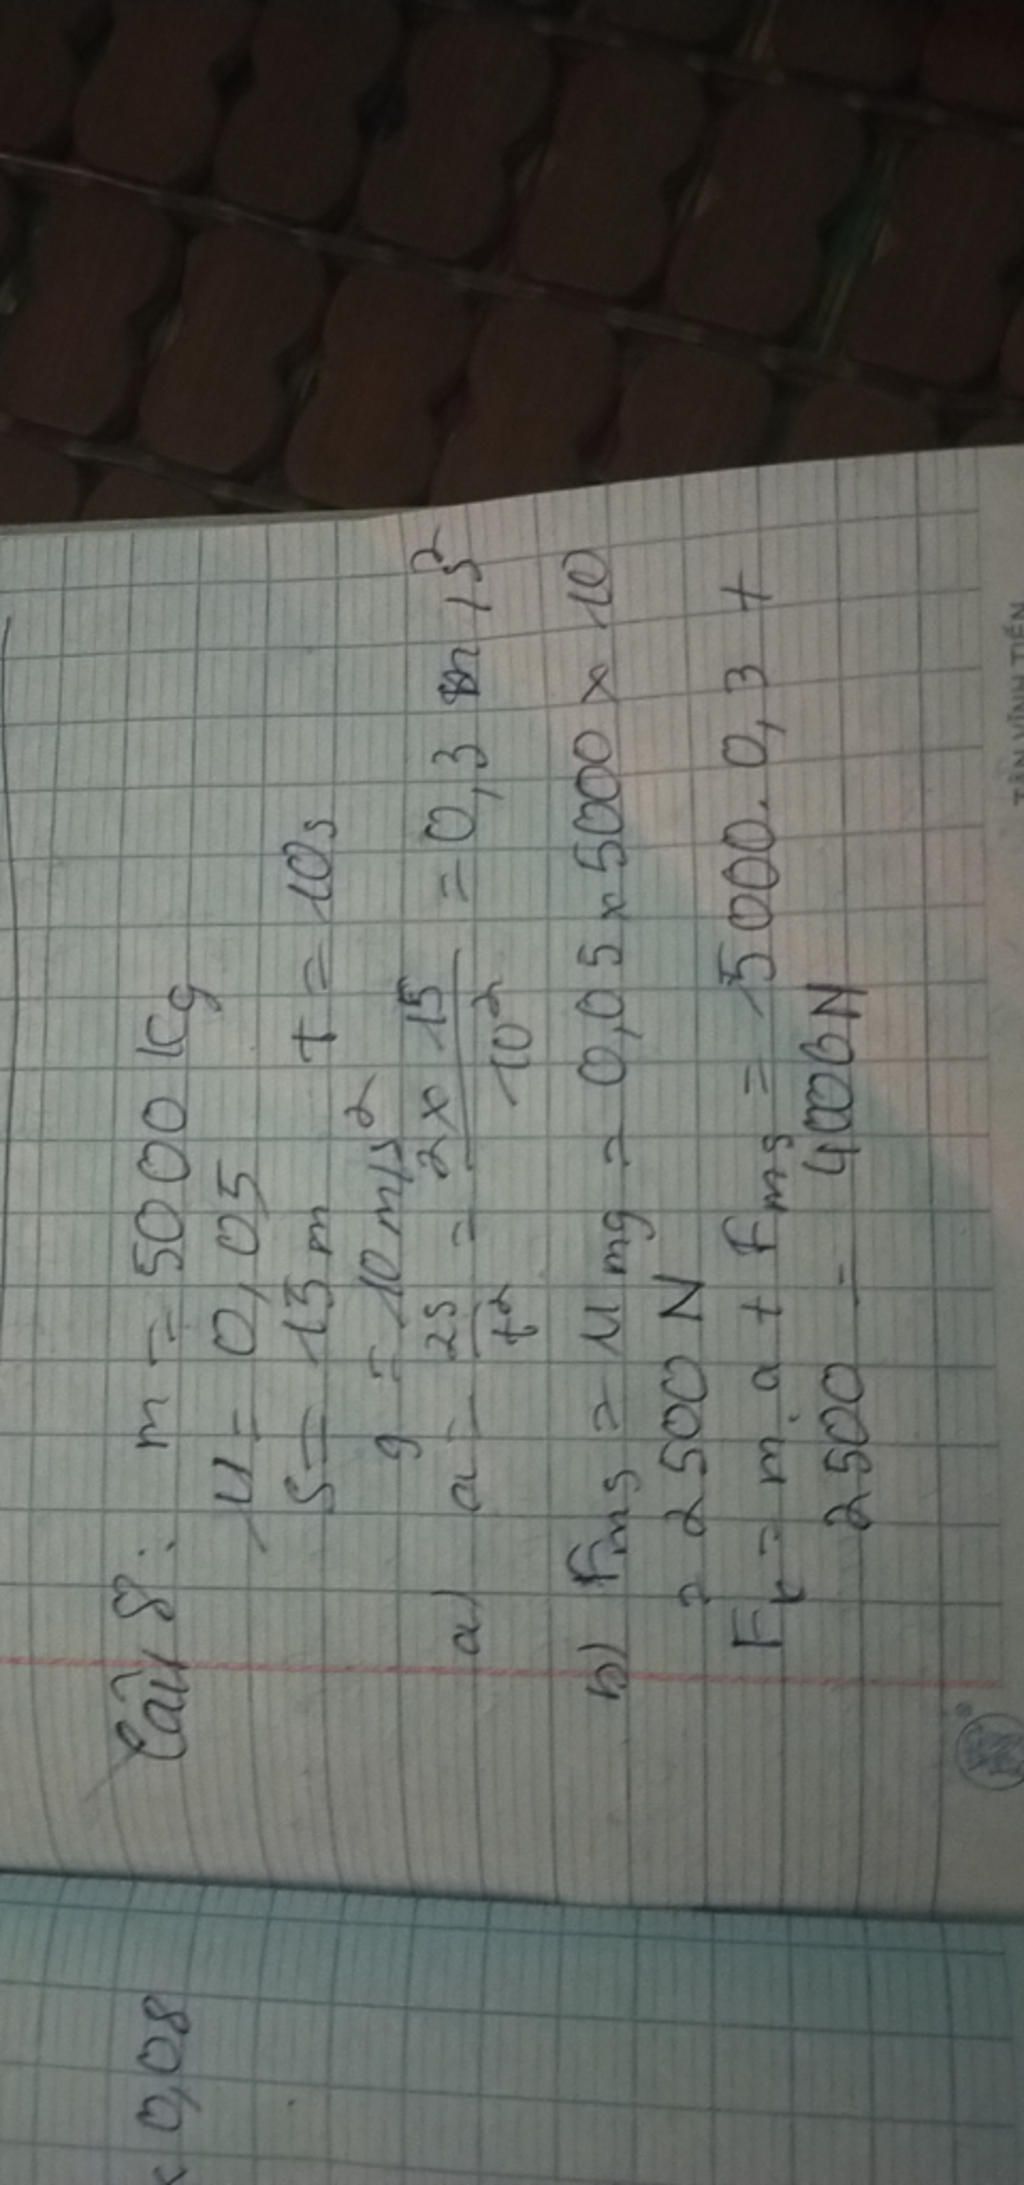 Câu 8 : m = 5000 kg
μ = 0,05
S = 15 m t = 10s
g = 10 m/s²
a) a = 2s/t² = 2 x 15/10² = 0,3 m/s²
b) Fms = μ mg = 0,05 x 5000 x 10
= 2500 N
Fk = m.a + Fms = 5000. 0,3 +
2500 = 4000N
x 0,08
TÂN VĨNH TIẾN